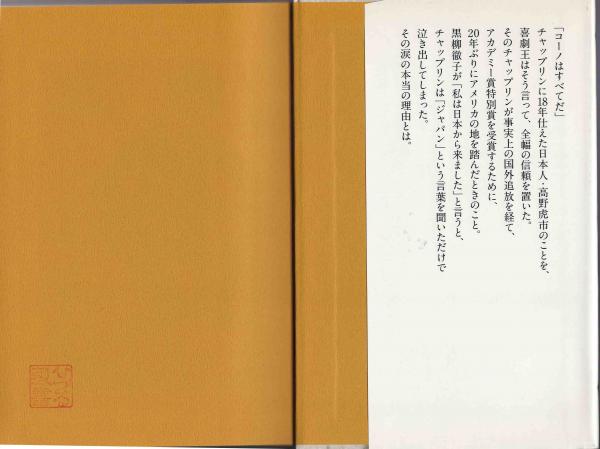 「コーノはすべてだ」
チャップリンに18年仕えた日本人・高野虎市のことを、
喜劇王はそう言って、全幅の信頼を置いた。
そのチャップリンが事実上の国外追放を経て、
アカデミー賞特別賞を受賞するために、
20年ぶりにアメリカの地を踏んだときのこと。
黒柳徹子が「私は日本から来ました」と言うと、
チャップリンは「ジャパン」という言葉を聞いただけで
泣き出してしまった。
その涙の本当の理由とは。